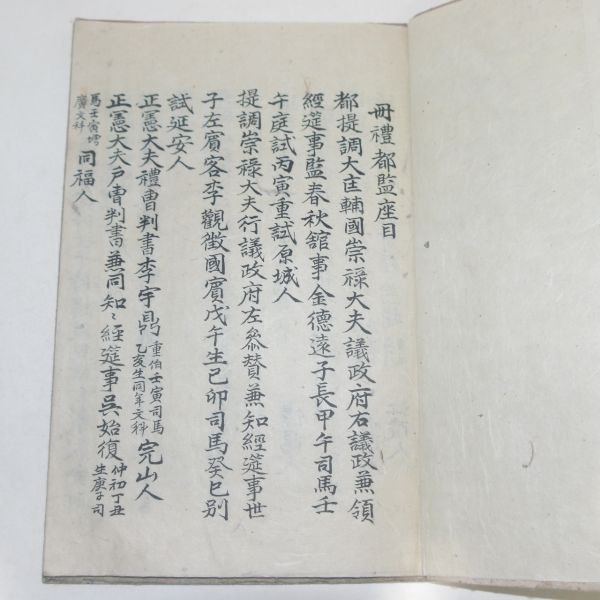 冊禮都監座目
都提調大匡輔國崇祿大夫議政府右議政兼領
經筵事監春秋舘事金德遠子長甲午司馬壬
午庭試丙寅重試原城人
提調崇祿大夫行議政府左叅贊兼知經筵事世
子左賓客李觀徵國賓戊午生己卯司馬癸巳别
試延安人
正憲大夫禮曺判書李宇鼎重伯壬寅司馬
乙亥生同年文科完山人
正憲大夫戶曺判書兼同知〻經筵事吳始復仲初丁丑
生庚子司
馬壬寅增
廣文科同福人